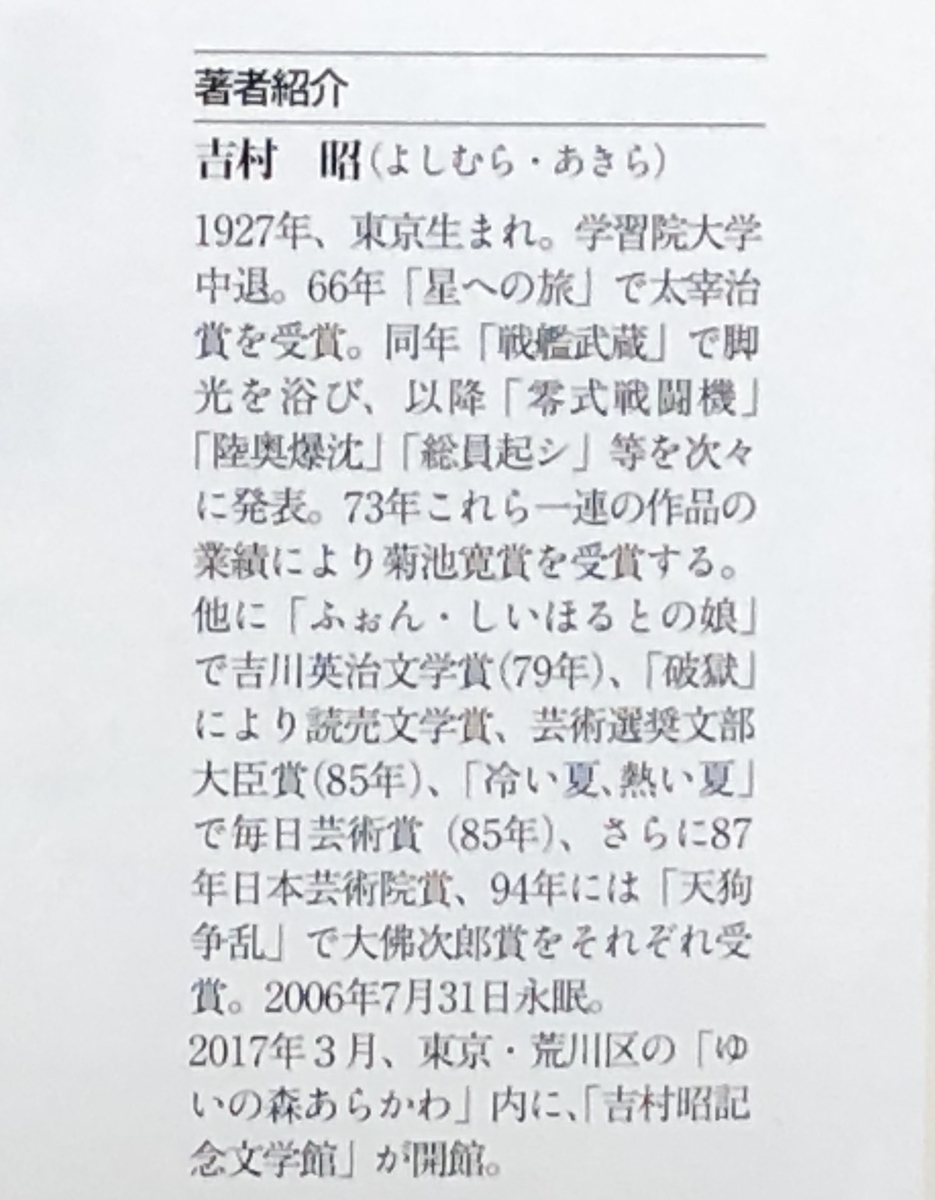 著者紹介
吉村　昭（よしむら・あきら）
1927年、東京生まれ。学習院大学
中退。66年「星への旅」で太宰治
賞を受賞。同年「戦艦武蔵」で脚
光を浴び、以降「零式戦闘機」
「陸奥爆沈」「総員起シ」等を次々
に発表。73年これら一連の作品の
業績により菊池寛賞を受賞する。
他に「ふぉん・しいほるとの娘」
で吉川英治文学賞(79年)、「破獄」
により読売文学賞、芸術選奨文部
大臣賞(85年)、「冷い夏、熱い夏」
で毎日芸術賞 (85年)、さらに87
年日本芸術院賞、94年には「天狗
争乱」で大佛次郎賞をそれぞれ受
賞。2006年7月31日永眠。
2017年３月、東京・荒川区の「ゆ
いの森あらかわ」内に、「吉村昭記
念文学館」が開館。